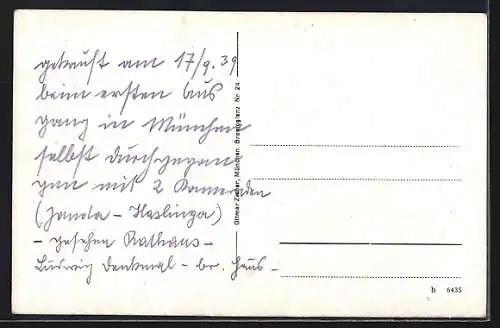 gekauft am 17/9.39
beim ersten Aus
gang in München
selbst durchgegan
gen mit 2 Kameraden
(Janda - Haslinga)
- gesehen Rathaus -
Ludwig Denkmal - br. Haus -
Ottmar Zieher, München. Bromglanz Nr. 24
b 6435